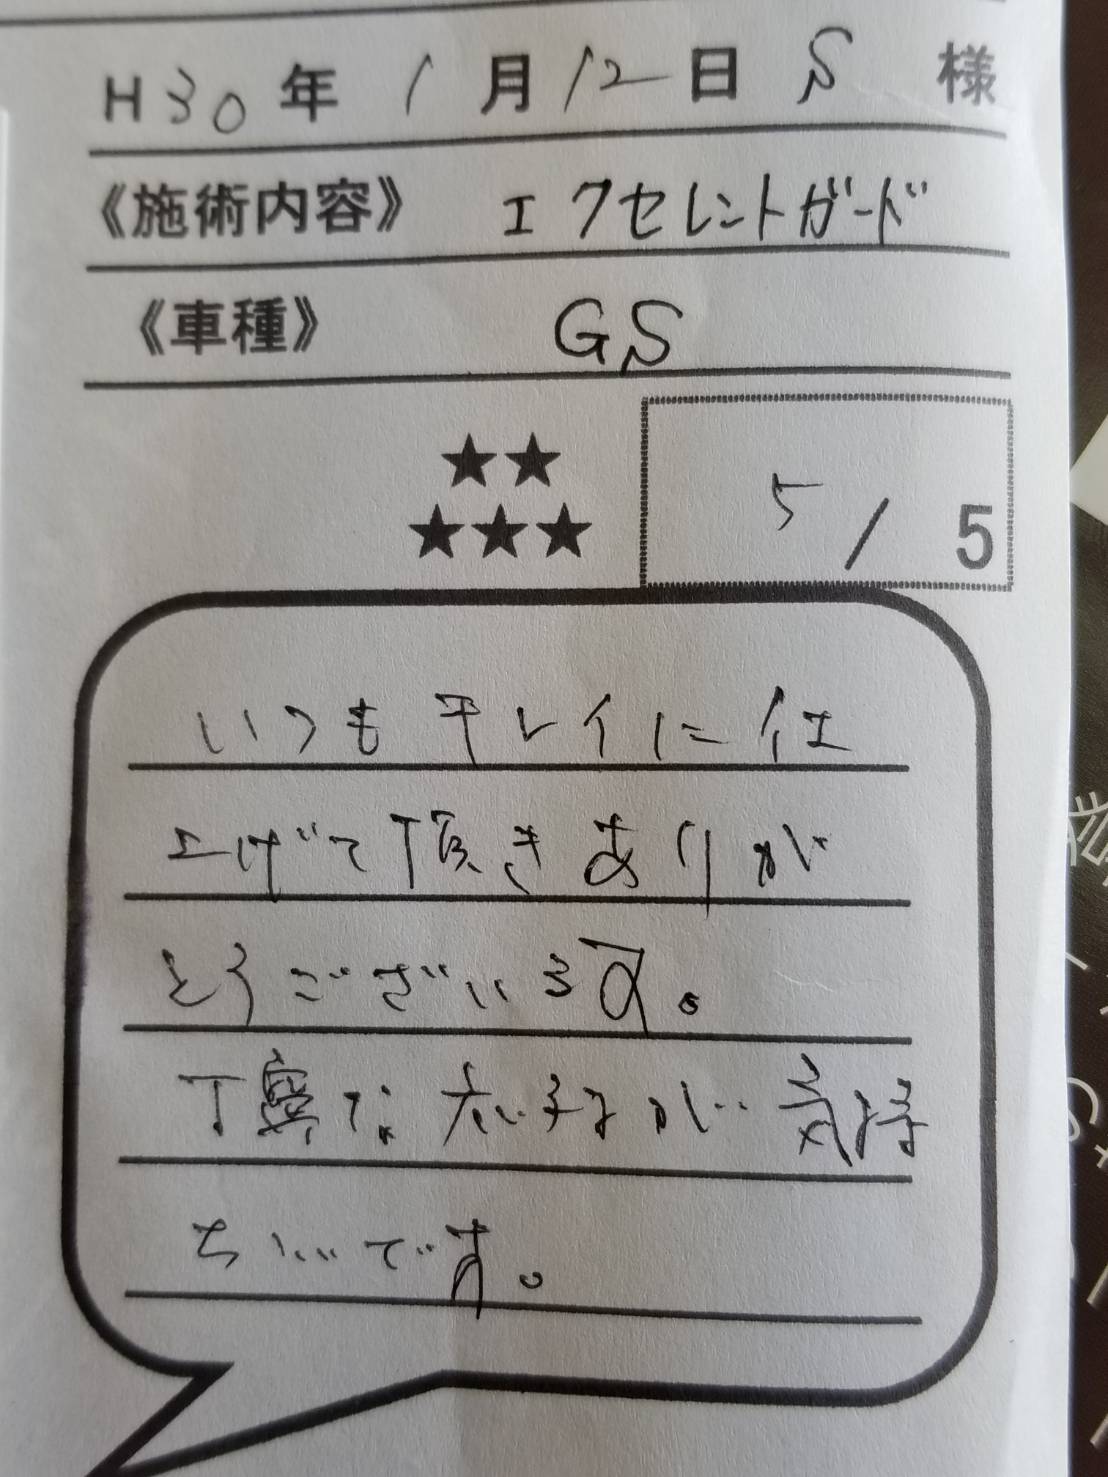 H30年 1月12日 S 様
《施術内容》 エクセレントガード
《車種》 GS
★★
★★★
5/5
いつもキレイに仕
上げて頂きありが
とうございます。
丁寧な応対が気持
ちいいです。